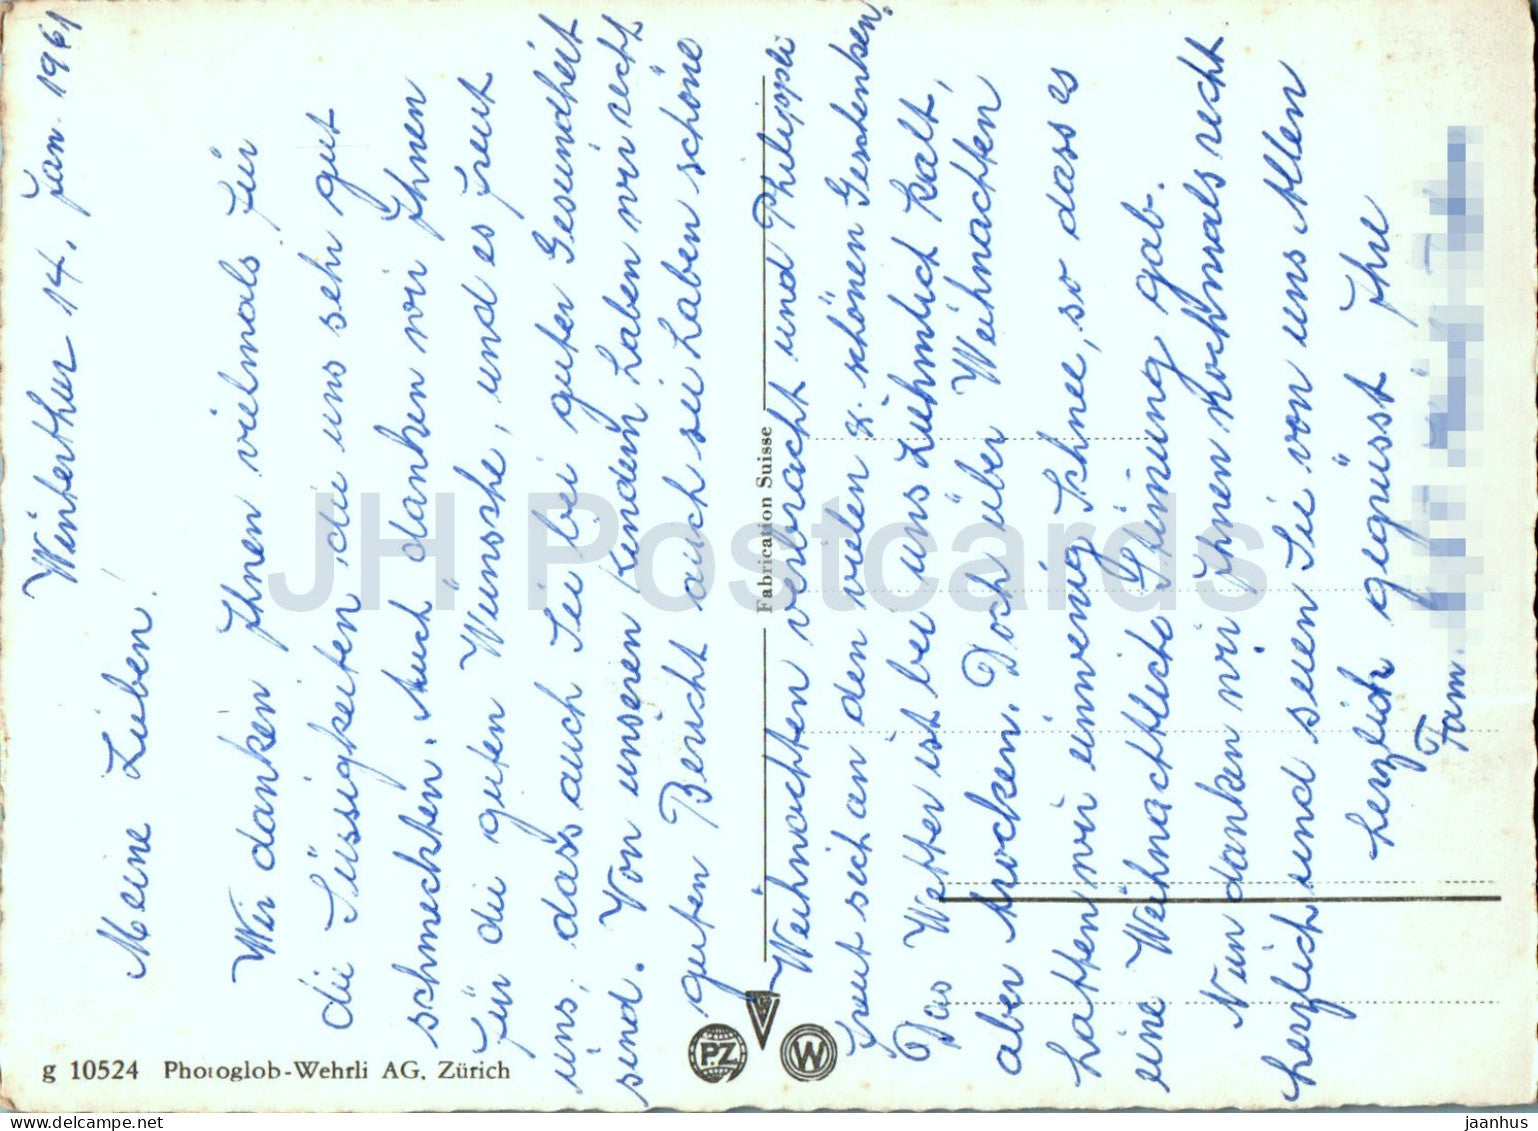 Winterthur 14. Jan. 1961
Meine Lieben!
Wir danken Ihnen vielmals für
die Süssigkeiten, die uns sehr gut
schmeckten. Auch danken wir Ihnen
für die guten Wünsche, und es freut
uns, dass auch Sie bei guter Gesundheit
sind. Von unseren Kindern haben wir recht
guten Bericht auch sie haben schöne
Weihnachten verbracht und Philippli
freut sich an den vielen & schönen Geschenken.
Das Wetter ist bei uns ziehmlich kalt,
aber trocken. Doch über Weihnachten
hatten wir einwenig Schnee, so dass es
eine Weihnachtliche Stimung gab.
Nun danken wir Ihnen nochmals recht
herzlich und seien Sie von uns Allen
herzlich gegrüsst Ihre
Fam.
Fabrication Suisse
PZ
W
g 10524 Photoglob-Wehrli AG, Zürich
JH Postcards
jaanhus